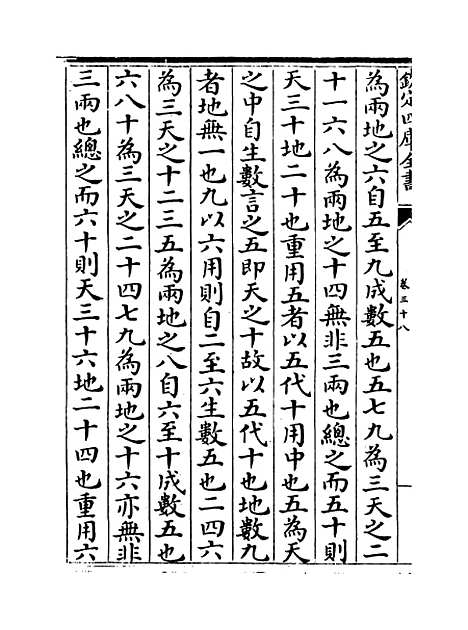 欽定四庫全書
卷三十八
為兩地之六自五至九成數五也五七九為三天之二
十一六八為兩地之十四無非三兩也總之而五十則
天三十地二十也重用五者以五代十用中也五為天
之中自生數言之五即天之十故以五代十也地數九
者地無一也九以六用則自二至六生數五也二四六
為三天之十二三五為兩地之八自六至十成數五也
六八十為三天之二十四七九為兩地之十六亦無非
三兩也總之而六十則天三十六地二十四也重用六